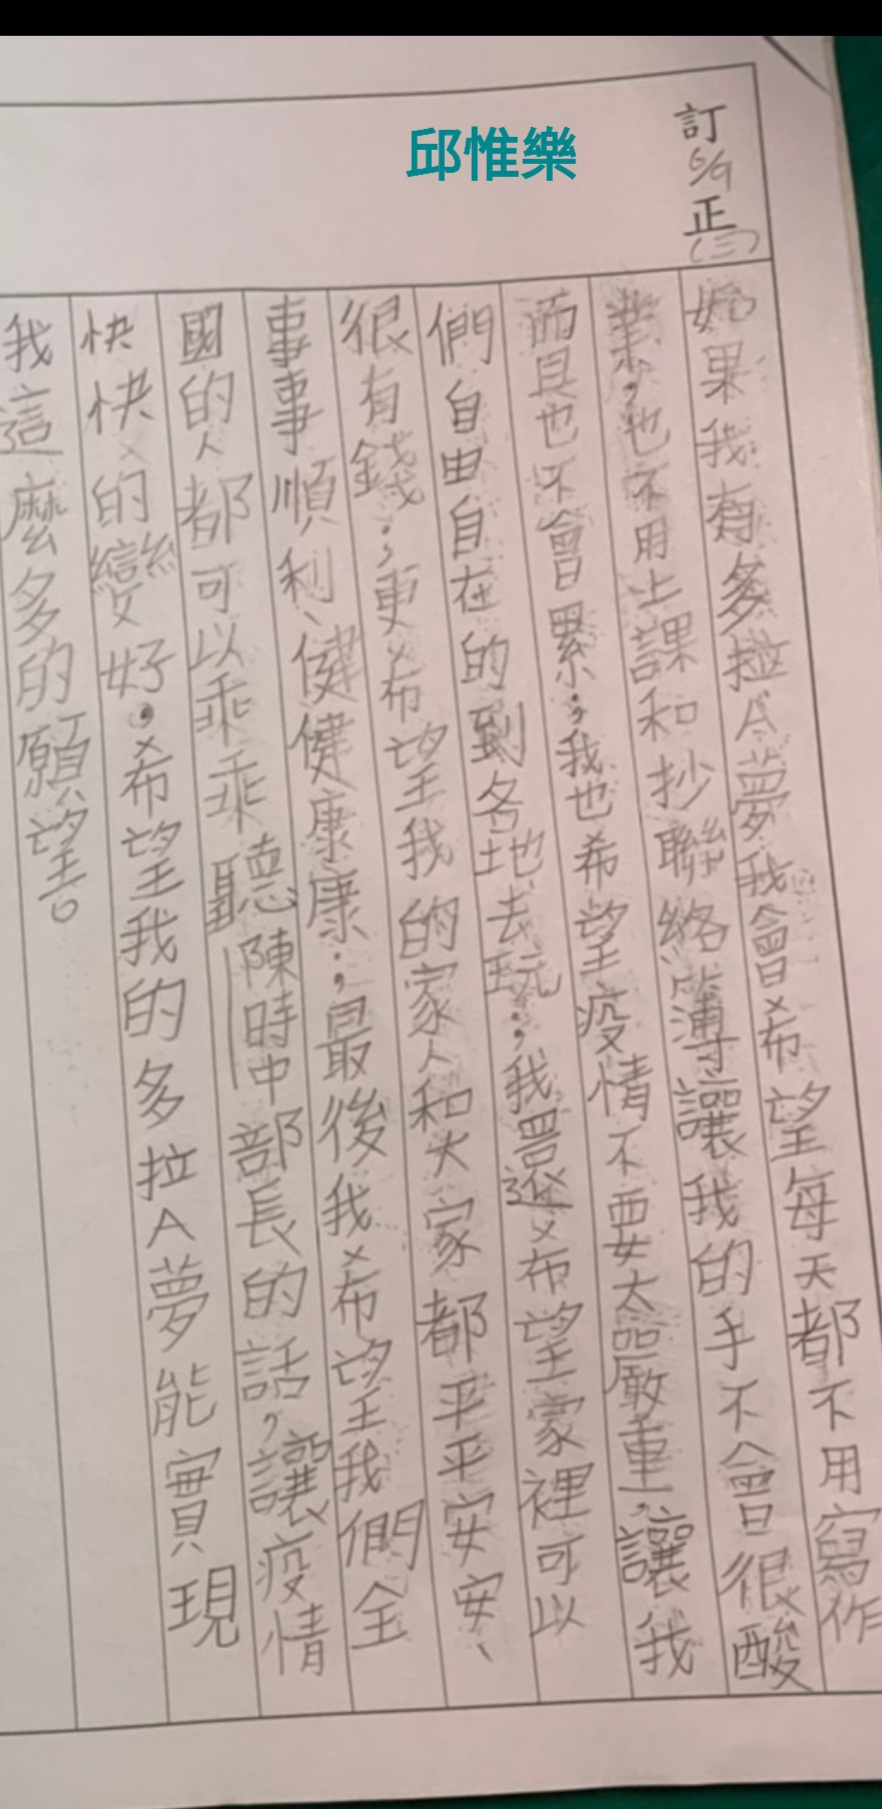 邱惟樂
訂正
6/9
(三)
如果我有多拉A夢我會希望每天都不用寫作
業,也不用上課和抄聯絡簿讓我的手不會很酸
而且也不會累;我也希望疫情不要太嚴重,讓我
們自由自在的到各地去玩;我還希望家裡可以
很有錢;更希望我的家人和大家都平平安安、
事事順利、健健康康;最後我希望我們全
國的人都可以乖乖聽陳時中部長的話,讓疫情
快快的變好。希望我的多拉A夢能實現
我這麼多的願望。